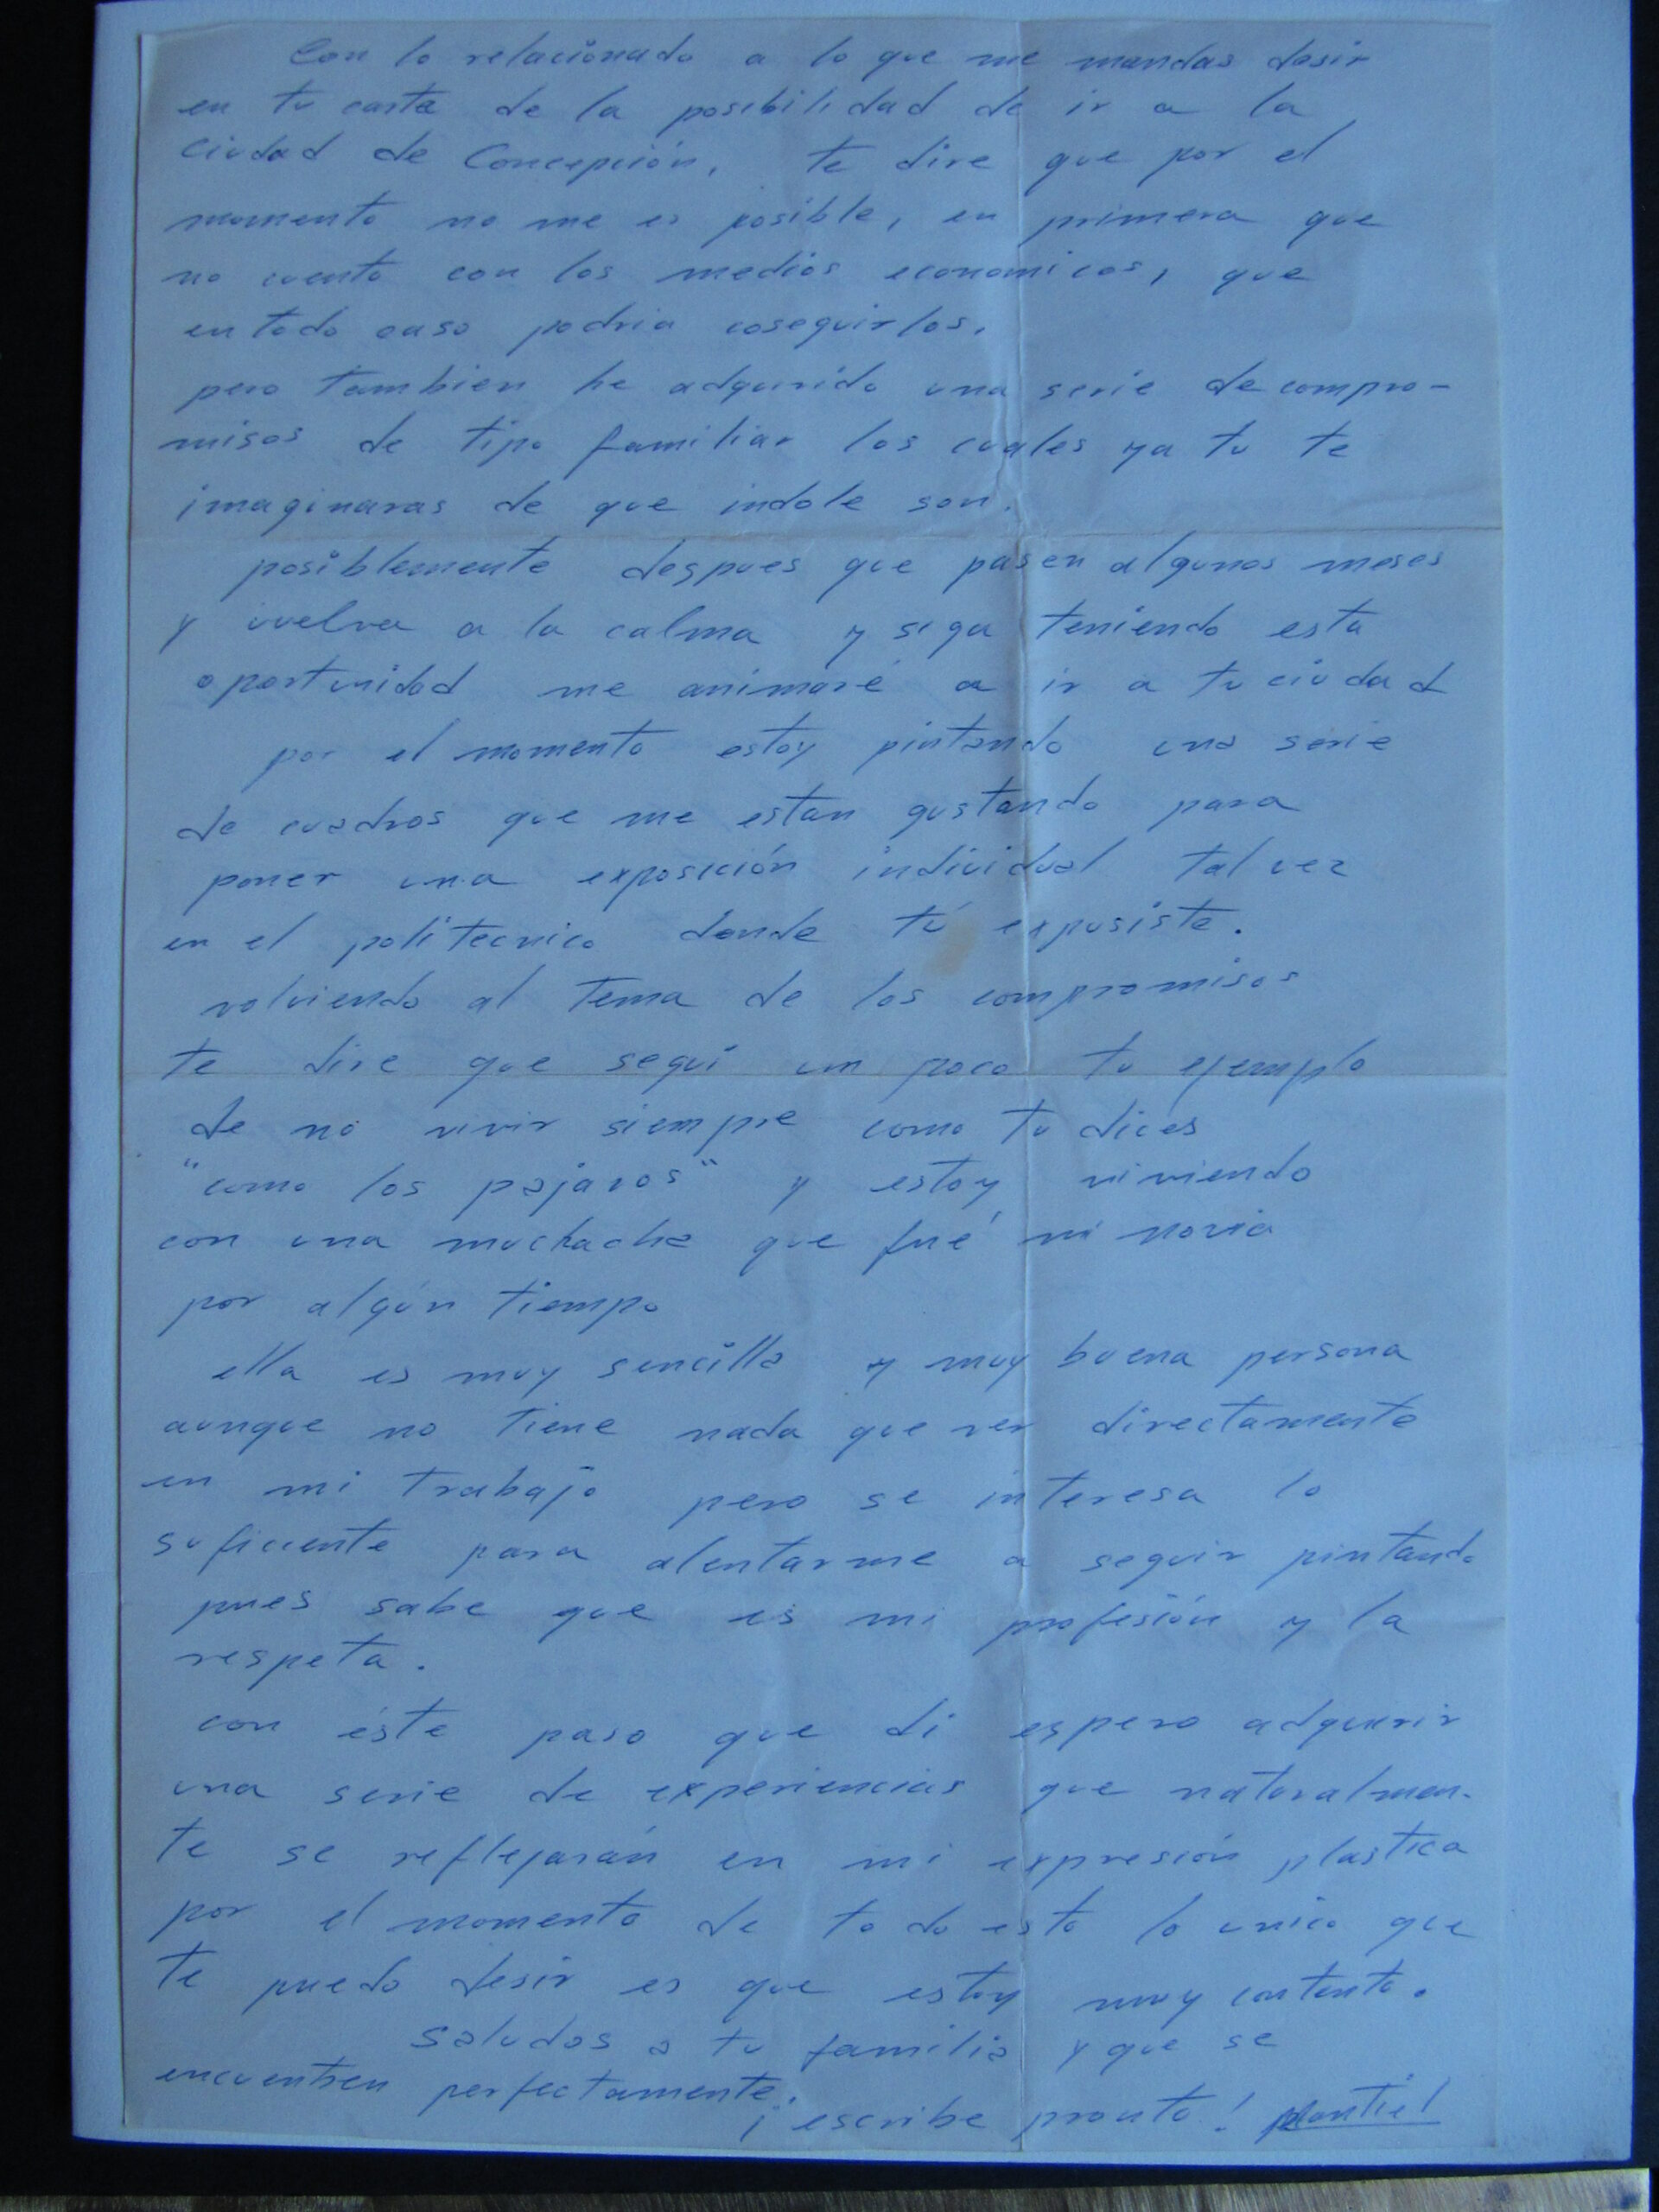 Con lo relacionado a lo que me mandas desir
en tu carta de la posibilidad de ir a la
ciudad de Concepción, te dire que por el
momento no me es posible, en primera que
no cuento con los medios economicos, que
en todo caso podria coseguirlos.
pero tambien he adquirido una serie de compro-
misos de tipo familiar los cuales ya tu te
imaginaras de que indole son.
posiblemente despues que pasen algunos meses
y vuelva a la calma y siga teniendo esta
oportunidad me animaré a ir a tu ciudad
por el momento estoy pintando una serie
de cuadros que me estan gustando para
poner una exposición individual tal vez
en el politecnico donde tú exposiste.
volviendo al tema de los compromisos
te dire que segui un poco tu ejemplo
de no vivir siempre como tu dices
"como los pajaros" y estoy viviendo
con una muchacha que fué mi novia
por algún tiempo
ella es muy sencilla y muy buena persona
aunque no tiene nada que ver directamente
en mi trabajo pero se interesa lo
suficiente para alentarme a seguir pintando
pues sabe que es mi profesión y la
respeta.
con éste paso que di espero adquirir
una serie de experiencias que naturalmen-
te se reflejarán en mi expresión plastica
por el momento de todo esto lo unico que
te puedo desir es que estoy muy contento.
saludos a tu familia y que se
encuentren perfectamente.
¡escribe pronto!